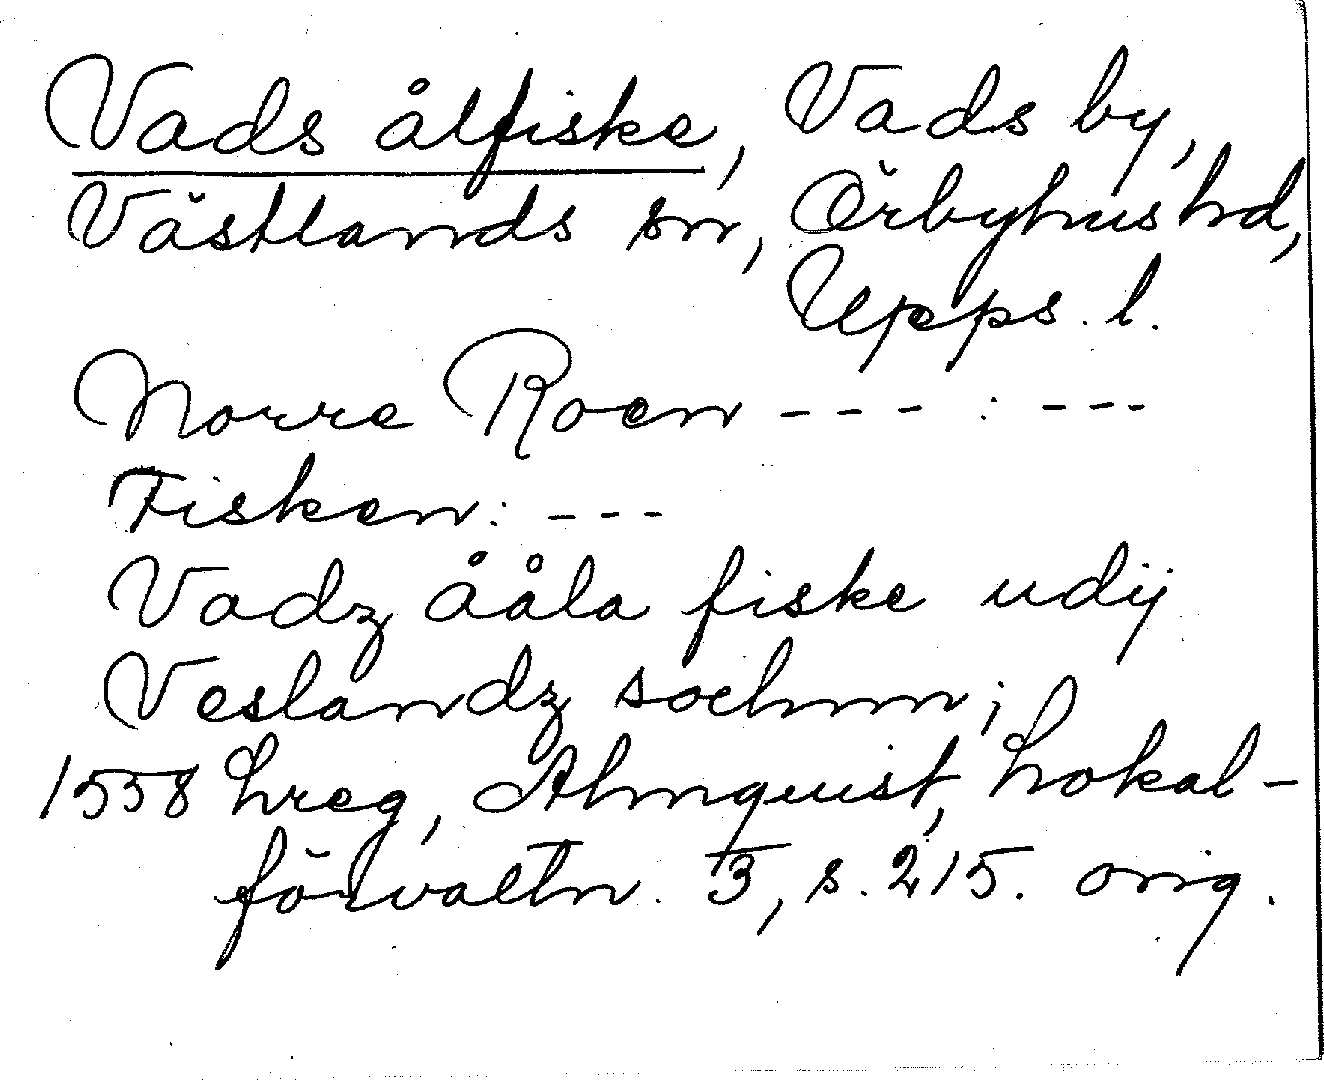 Vads ålfiske, Vads by,
Västlands sn, Örbyhus hd,
Upps. l.
Norre Roen --- : ---
Fisken: ---
Vadz ååla fiske udij
Veslandz sochnn;
1558 Lreg, Almquist, Lokal-
förvaltn. 3, s. 215. orig.